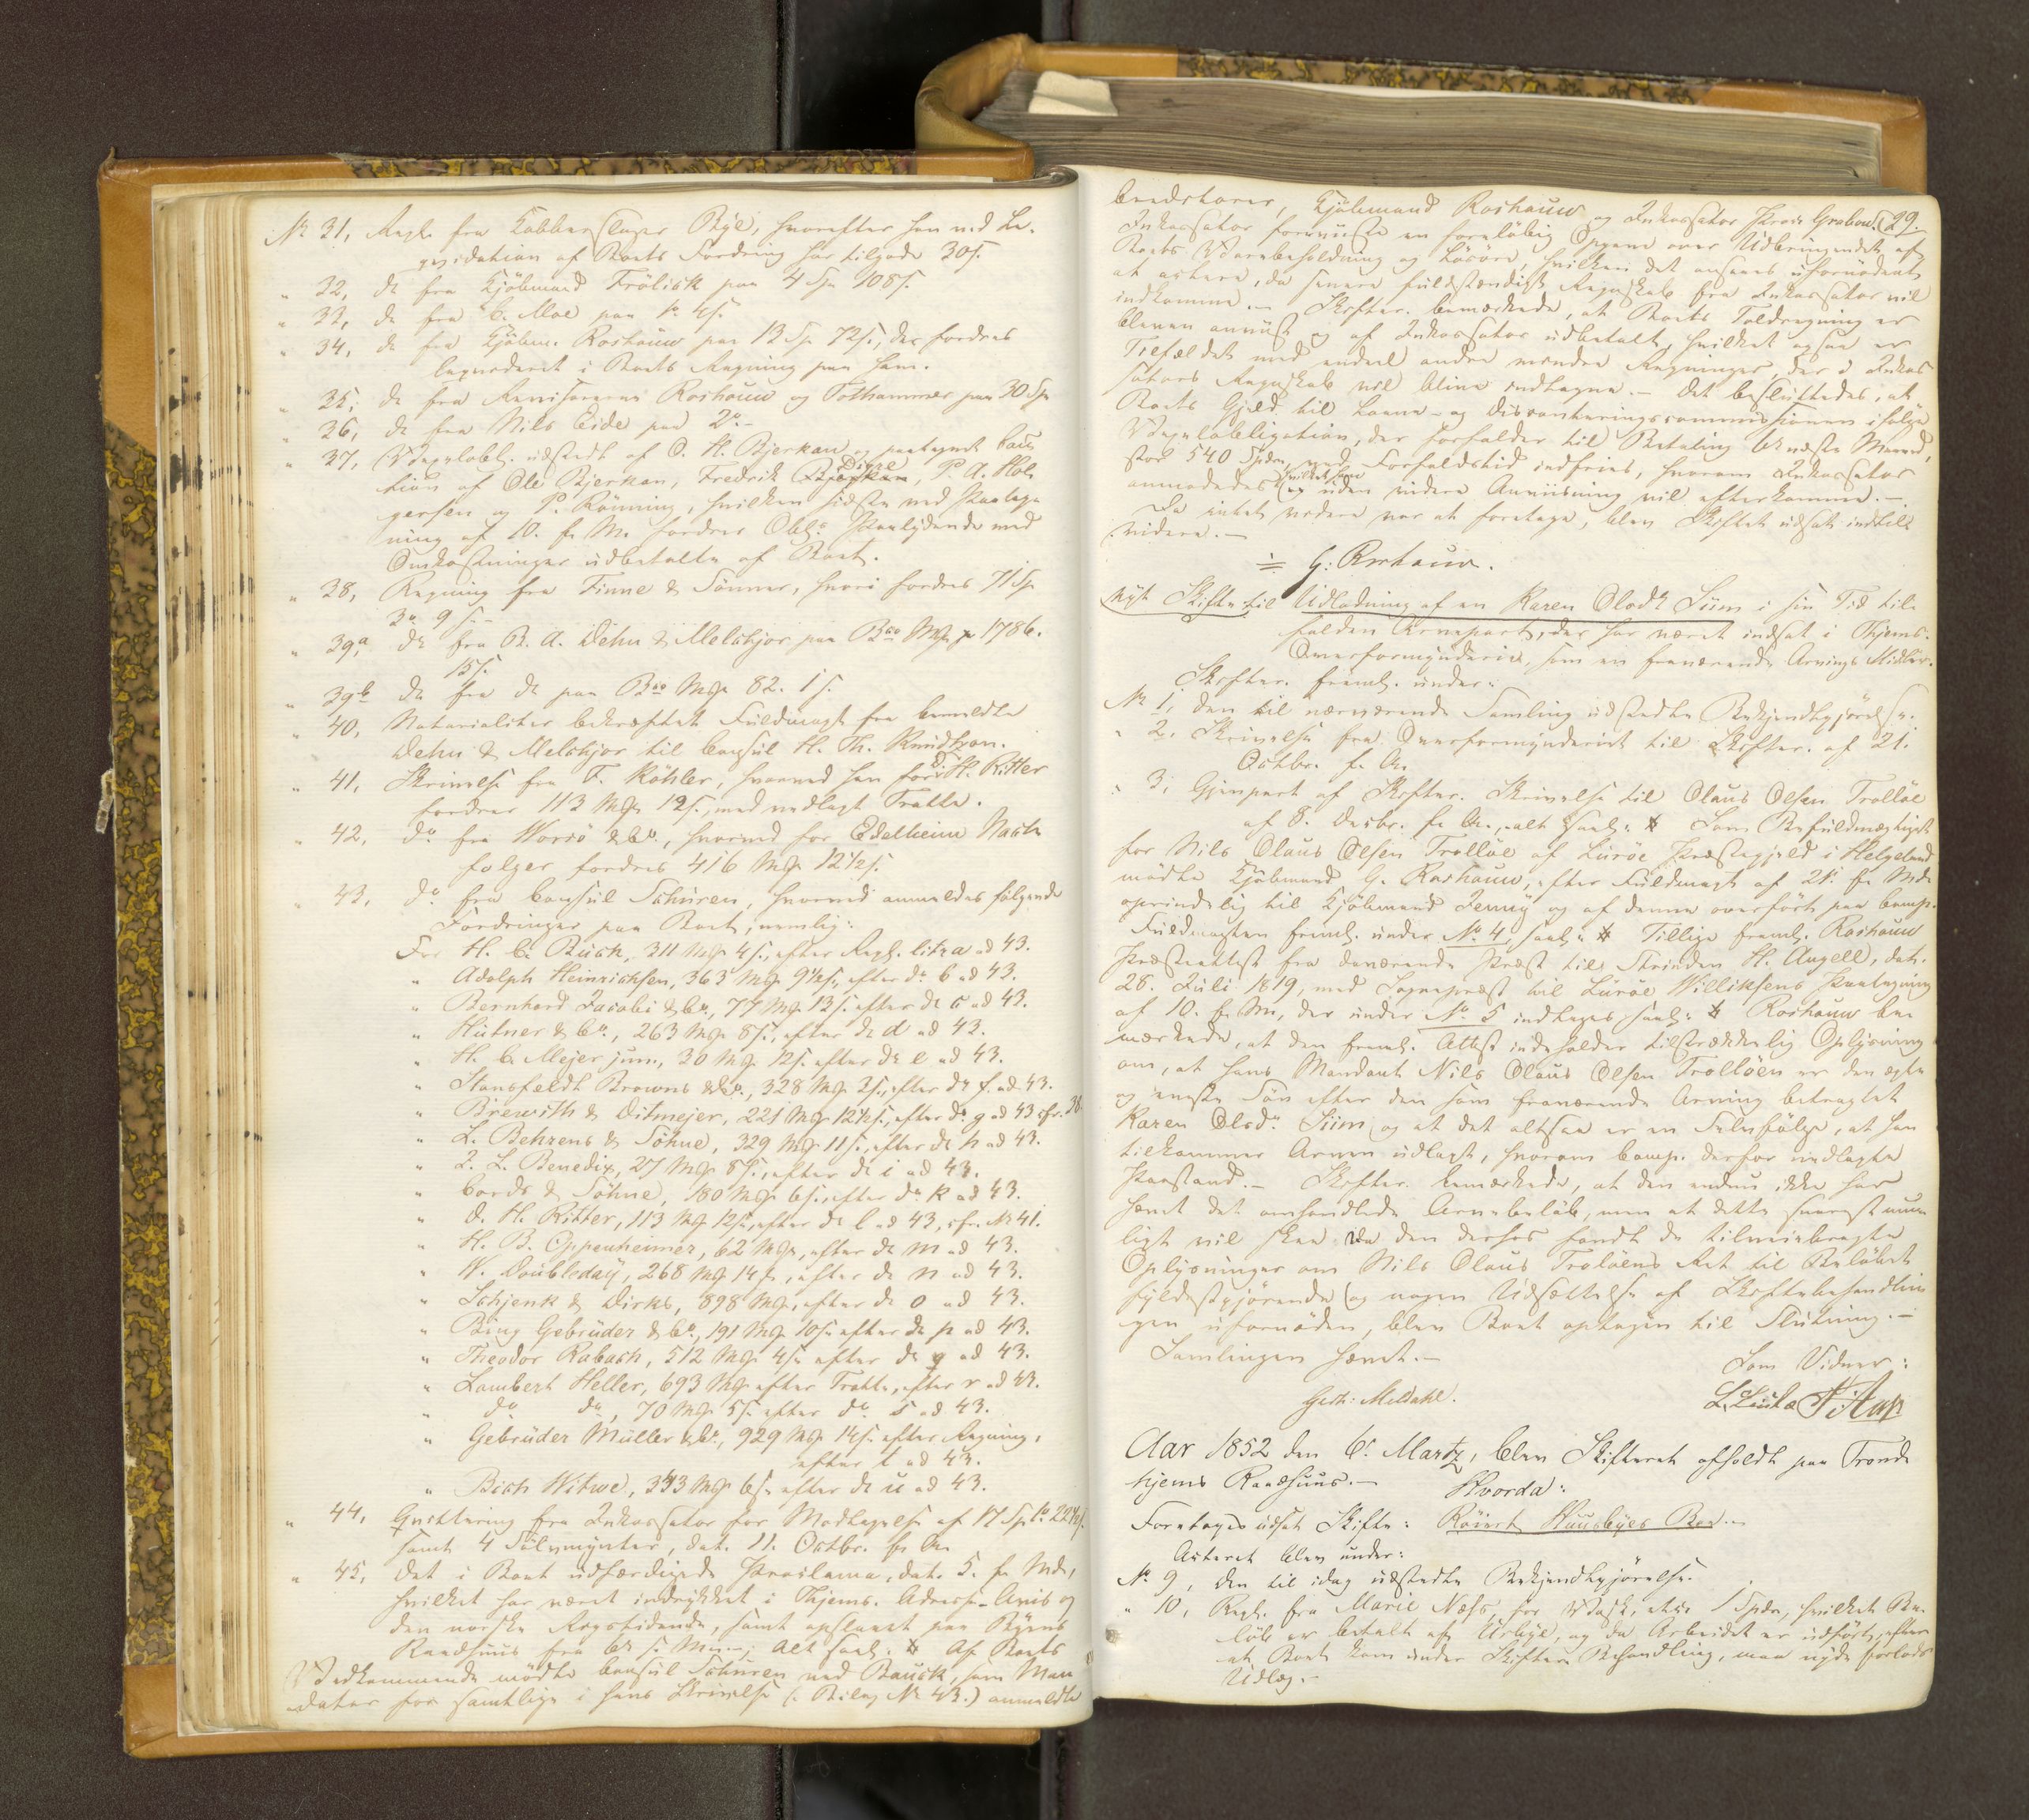 No 31, Regn. fra Kobberslager Byé, hvorefter han ved Li-
qvidation af Boets Fordring har tilgode 30 s.
" 32, do fra Kjöbmand Frölick paa 4 Spd 108 s.
" 33, do fra C. Moe paa 1o 4 s.
" 34, do fra Kjöbm. Roshauw paa 12 Sp 72 s., der fordres
liqvideret i Boets Regning paa ham.
" 35, do fra Revisorerne Roshauw og Folthammer paa 30 Sp
" 36, do fra Nils Eide paa 2o -
" 37, Vexelobl. udstedt af O. H. Bjerkan og paategnet Cau-
tion af Ole Bjerkan, Fredrik Digre, P. A. Hol-
gersen og P. Rönning, hvilken sidste ved Paateg-
ning af 10. f. M. fordrer Obl. Paalydende med
Omkostninger udbetalte af Boet.
" 38, Regning fra Finne & Sönner, hvori fordres 71 Sp
3o 9 s. -
" 39a, do fra B. A. Dehn & Melchjor paa Bco Mk 1786.
15 s.
" 39b do fra do paa Bco Mk 82. 1 s.
" 40, Notarialiter bekræftet Fuldmagt fra bemeldte
Dehn & Melchjor til Consul H. Th. Knudtzon.
" 41, Skrivelse fra F. Köhler, hvorved han for D. H. Ritter
fordrer 113 Mk 12 s., med vedlagt Tratte.
" 42, do fra Worsö & Co, hvorved for Edelheim Nach-
folger fordres 416 Mk 12½ s.
" 43, do fra Consul Schüren, hvorved anmeldes følgende
Fordringer paa Boet, nemlig:
For H. C. Buck, 311 Mk 4 s., efter Regn. litra a ad 43.
" Adolph Heinrichsen, 363 Mk 9½ s., efter do b ad 43.
" Bernhard Jacobi & Co, 77 Mk 13 s. efter do c ad 43.
" Hütner & Co, 263 Mk 8 s., efter do d ad 43.
" H. C. Mejer jun., 30 Mk 12 s. efter do e ad 43.
" Stansfeldt Browns & Co, 328 Mk 2 s., efter do f. ad 43.
" Birewith & Ditmejer, 221 Mk 12½ s., efter do g ad 43 cfr. 38.
" L. Behrens & Söhne, 329 Mk 11 s., efter do h ad 43.
" L. Benedix, 27 Mk 8 s., efter do i ad 43.
" Cords & Söhne, 180 Mk 6 s., efter do k ad 43.
" D. H. Ritter, 113 Mk 12 s., efter do l ad 43, cfr. No 41.
" H. B. Oppenheimer, 62 Mk, efter do m ad 43.
" W. Doubleday, 268 Mk 14 s., efter do n ad 43.
" Schjenk & Dirks, 898 Mk, efter do o ad 43.
" Bing Gebrüder & Co, 191 Mk 10 s. efter do p ad 43.
" Theodor Rabach, 512 Mk 4 s. efter do q ad 43.
" Lambert Heller, 693 Mk efter Tratte, efter r ad 43.
" do do, 70 Mk 5 s. efter do s ad 43.
" Gebrüder Müller & Co, 929 Mk 14 s. efter Regning,
efter t ad 43.
" Bich Witwe, 343 Mk 6 s. efter do u ad 43.
" 44, Qvittering fra Inkassator for Modtagelse af 17 Sp 1o 22½ s.
samt 4 Sölvmynter, dat. 11. Octbr. f. A.
" 45, Det i Boet udfærdigede Proclama, dat. 5. f. Md.,
hvilket har været indrykket i Thjems. Adresse-Avis og
den norske Rigstidende, samt opslaaet paa Byens
Raadhuus fra 6te s. M. - Alt saal. Af Boets
Vedkommende mödte Consul Schüren ved Bauck, som Man-
datar for samtlige i hans Skrivelse (: Bilag No 43.) anmeldte
29.
Creditorer, Kjöbmand Roshauw og Inkassator Procr. Grabow.
Inkassator foreviiste en foreløbig Opgave over Udbringendet af
Boets Varebeholdning og Lösöre, hvilken det ansaaes ufornödent
at actere, da senere fuldstændigt Regnskab fra Inkassator vil
indkomme. - Skifter. bemærkede, at Boets Toldregning er
bleven anviist og af Inkassator udbetalt, hvilket ogsaa er
Tilfældet med endeel andre mindre Regninger, der i Inkas-
sators Regnskab vil blive indtagne. - Det besluttedes, at
Boets Gjeld til Laane- og Disconteringscommissionen ifølge
Vexelobligation, der forfalder til Betaling 6te næste Maaned,
stor 540 Spd., ved Forfaldstid indfries, hvorom Inkassator
anmodedes, hvilket han uden videre Anviisning vil efterkomme. -
Da intet videre var at foretage, blev Skiftet udsat indtil
videre. -
G. Roshauw.
Nyt Skifte til Udlodning af en Karen Olsdr Siim i sin Tid til-
falden Arvepart, der har været indsat i Thjems.
Overformynderie, som en fraværende Arvings Midler.
Skifter. freml. under:
No 1, den til nærværende Samling udstedte Bekjendtgjörelse.
" 2, Skrivelse fra Overformynderiet til Skifter. af 21.
Octbr. f. A.
" 3, Gjenpart af Skifter. Skrivelse til Olaus Olsen Trolløe
af 8. Decbr. f. A., - alt saal. Som Befuldmægtiget
for Nils Olaus Olsen Trolløe af Lurøe Præstegjeld i Helgeland
mødte Kjöbmand G. Roshauw, efter Fuldmagt af 21. f. Md.
oprindelig til Kjöbmand Jenny og af denne overfört paa Comp.
Fuldmagten freml. under No 4, saal. Tillige freml. Roshauw
Præsteattest fra daværende Præst til Strinden H. Angell, dat.
28. Juli 1819, med Sognepræst til Lurøe Williksens Paategning
af 10. f. M., der under No 5 indtages saal. Roshauw be-
mærkede, at den freml. Attest indeholder tilstrækkelig Oplysning
om, at hans Mandant Nils Olaus Olsen Trolløen er den ægte
og eneste Sön efter den som fraværende Arving betragtet
Karen Olsdr. Siim, og at det altsaa er en Selvfølge, at han
tilkommer Arven udlagt, hvorom Comp. derfor nedlagde
Paastand. - Skifter. bemærkede, at den endnu ikke har
hævet det omhandlede Arvebeløb, men at dette snarest mu-
ligt vil skee. Da den derhos fandt de tilveiebragte
Oplysninger om Nils Olaus Troløens Ret til Beløbet
fyldestgjörende og nogen Udsættelse af Skiftebehandlin-
gen ufornöden, blev Boet optagen til Slutning. -
Samlingen hævet. -
Som Vidner:
Gerh: Meldahl.
Aar 1852 den 6te Martz, blev Skifteret afholdt paa Trond-
hjems Raadhuus. - Hvorda:
Foretages udsat Skifte: Röiert Huusbyes Boe. -
Acteret blev under:
No 9, den til idag udstedte Bekjendtgjörelse.
" 10, Regn. fra Marie Næss, for Vask, 1 Spd., hvilket Be-
løb er betalt af Urbye, og da Arbeidet er udført, efter
at Boet kom under Skifterets Behandling, maa nyde forlods
Udlæg. -